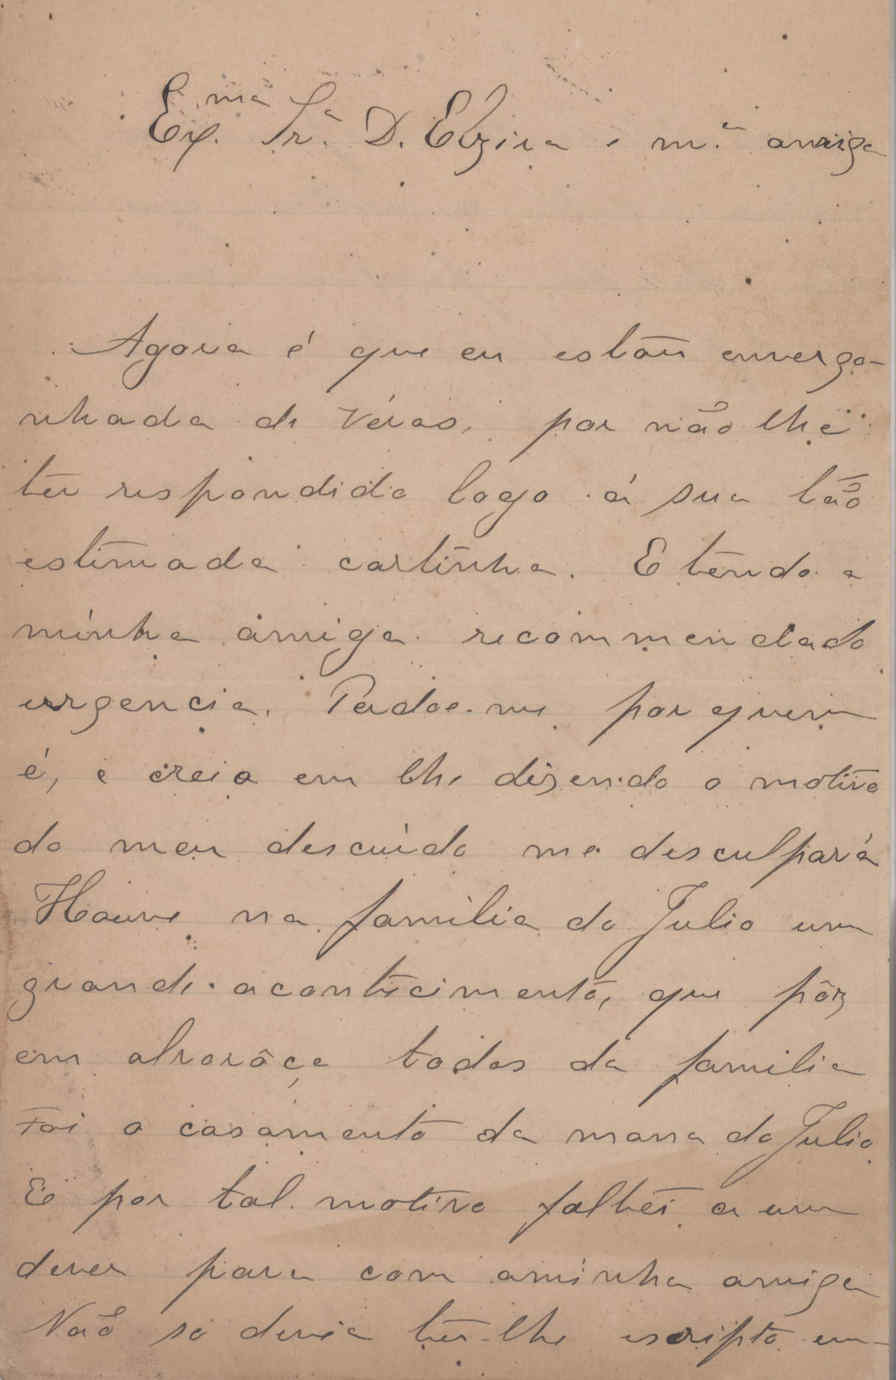 Ex.ma Sr.a D. Elzira e m.a amiga
Agora é que eu estou envergo-
nhada de véras, por não lhe
ter respondido logo á sua tão
estimada cartinha. E tendo a
minha amiga recommendado
urgencia. Perdoe-me por quem
é, e creio em lhe dizendo o motivo
do meu descuido me desculpará
Houve na familia do Julio um
grande acontecimento, que pôz
em alvorôço todos da familia
Foi o casamento da mana do Julio
E por tal motivo faltei a um
dever para com aminha amiga
Não so devia ter-lhe escripto em-